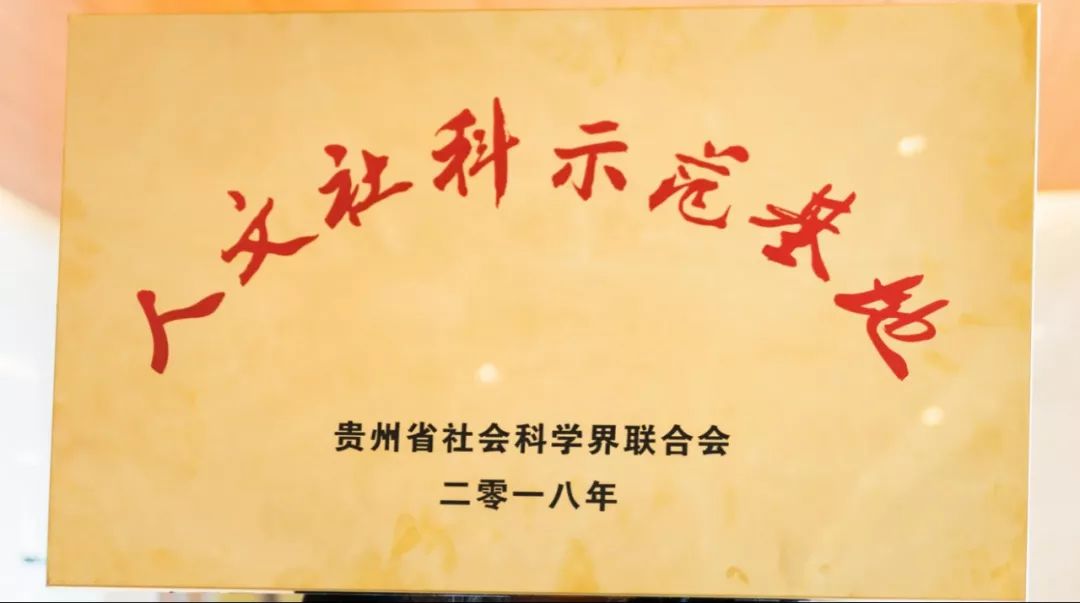 人文社科示范基地
贵州省社会科学界联合会
二零一八年